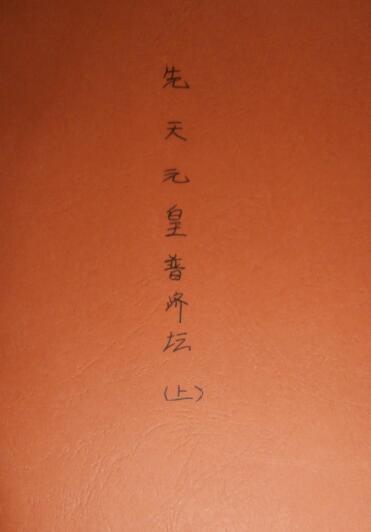 先天元皇普济坛（上）